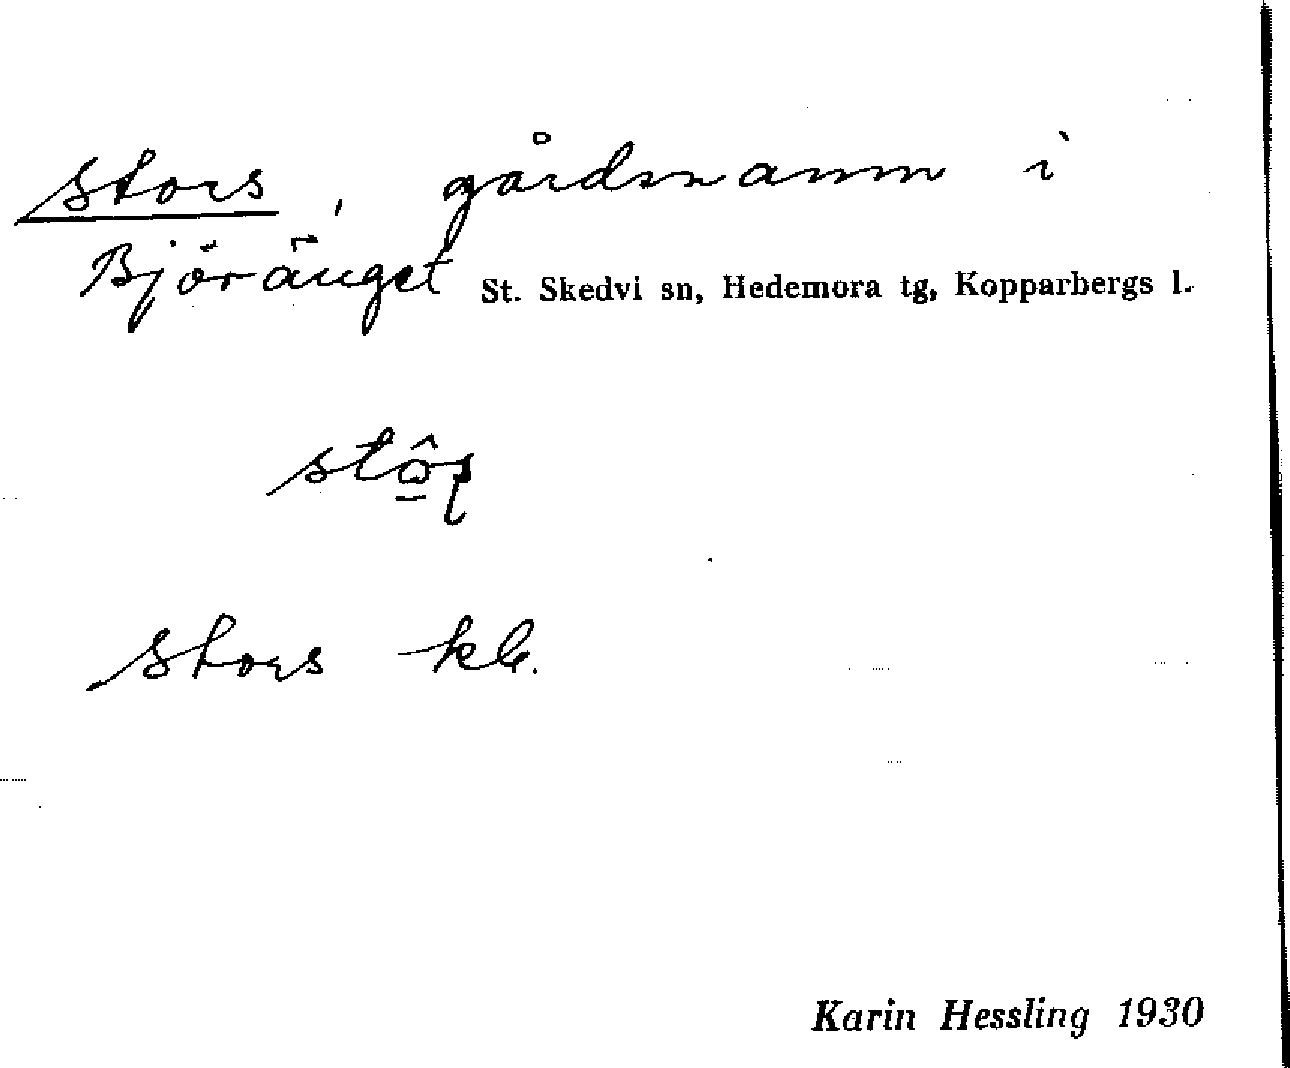 Stors, gårdsnamn i
Björänget St. Skedvi sn, Hedemora tg, Kopparbergs l.
Stors kb.
Karin Hessling 1930